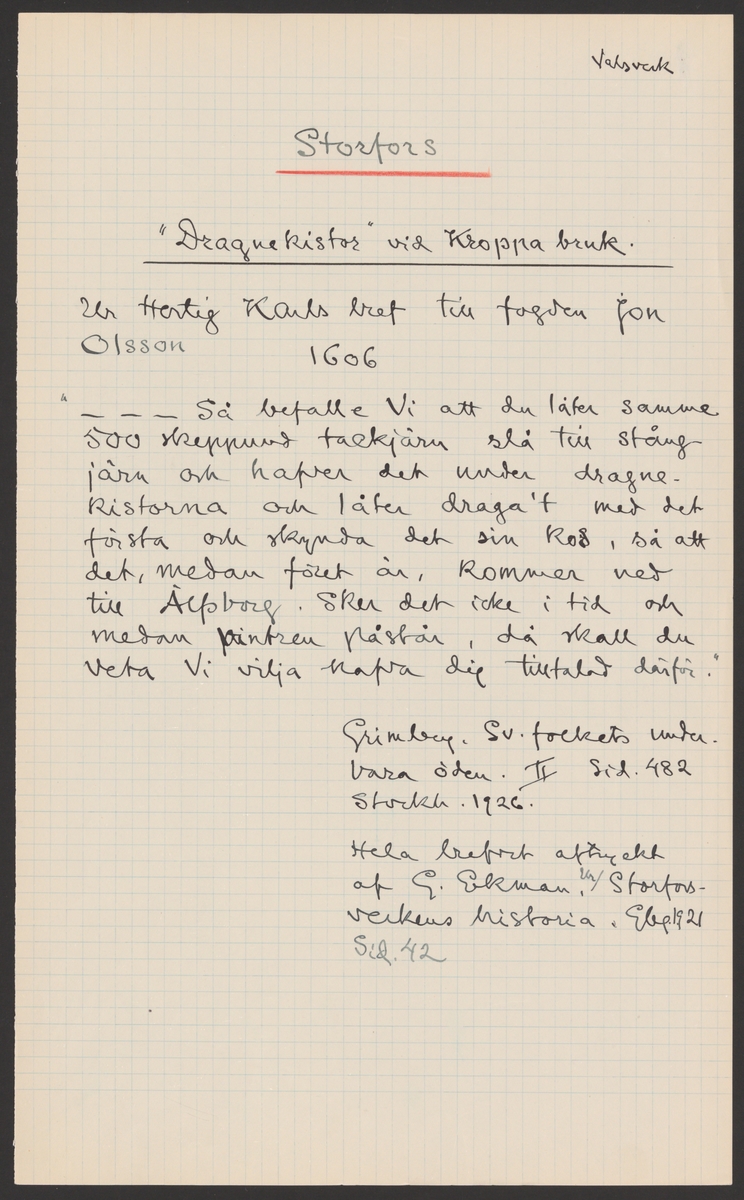 Valsverk
Storfors
"Dragnekistor" vid Kroppa bruk.
Ur Hertig Karls bref till fogden Jon
Olsson 1606
"_ _ _ Så befalle Vi att du låter samme
500 skeppund tackjärn slå till stång-
järn och hafver det under dragne-
kistorna och låter draga't med det
första och skynda det sin kos, så att
det, medan föret är, kommer ned
till Älfsborg. Sker det icke i tid och
medan vintren påstår, då skall du
veta Vi vilja hafva dig tilltalad därför."
Grimberg. Sv. folkets under-
bara öden. II Sid. 482
Stockh. 1926.
Hela brefvet aftryckt
af G. Ekman, Ur/ Storfors-
verkens historia. Gbg 1921
Sid. 42